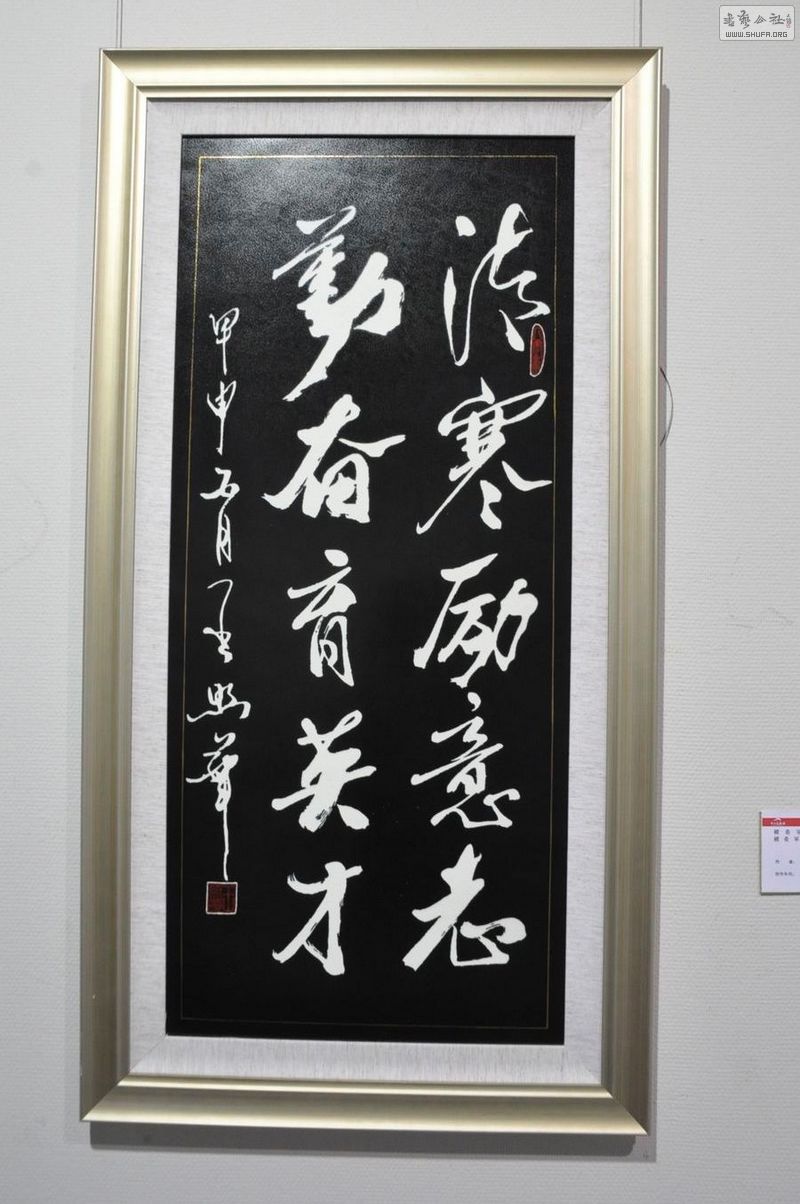 清寒励意志
勤奋育英才
甲申五月 照華
書藝公社
WWW.SHUFA.ORG